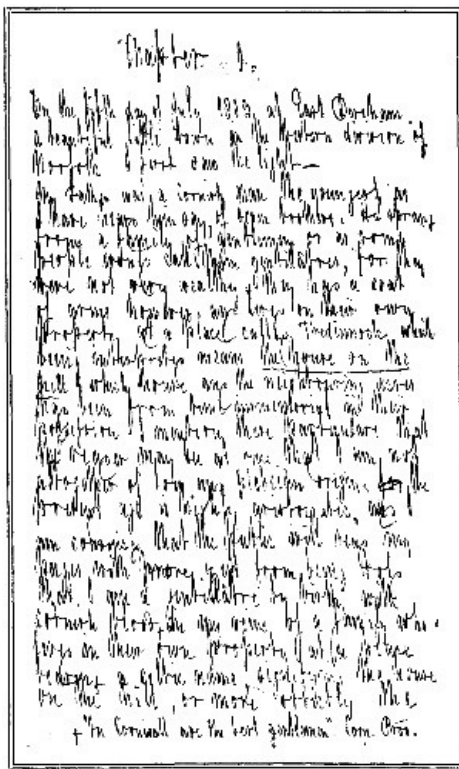 Chapter 1.
On the fifth day of July 1803, at East Dereham
a beautiful little town in the western division of
Norfolk I first saw the light—
My father was a Cornish man, the youngest as
I have heard him say, of seven brothers. He sprang
from a family of gentlemen or as some
people would call them gentillatres, for they
were not very wealthy; they had a coat
of arms however, and lived on their own
property at a place called Tredinnock, which
being interpreted means the house on the
hill, which house and the neighbouring acres
had been from time immemorial in their
possession. I mention these particulars that
the reader may see at once that I am not
altogether of low and plebeian origin; the
present age is highly aristocratic, and I
am convinced that the public will read my
pages with more zest from being told
that I am a gentillatre by birth with
Cornish blood in my veins, of a family who
lived on their own property at a place
bearing a Celtic name signifying the house
on the hill, or more strictly the
+ "In Cornwall are the best gentlemen" Corn. Prov.